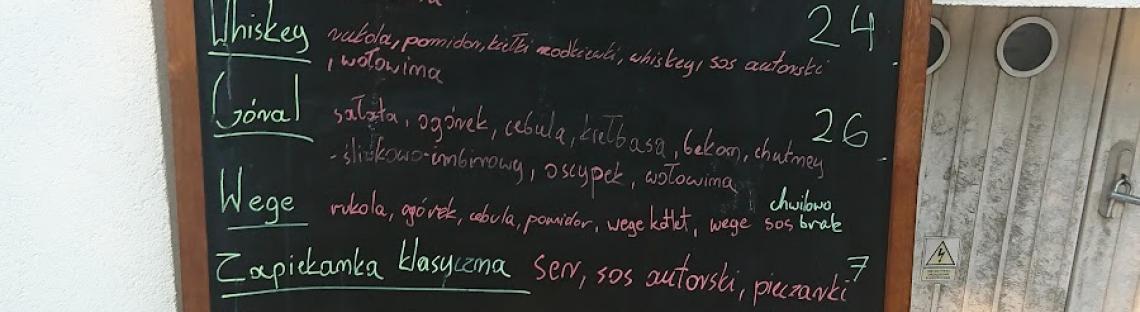 Whiskey rukola, pomidor, kiełki rzodkiewki, whiskey, sos autorski 24
, wołowina
Góral sałata, ogórek, cebula, kiełbasa, bekon, chutney 26
-śliwkowo-imbirowy, oscypek, wołowina
Wege rukola, ogórek, cebula, pomidor, wege kotlet, wege sos chwilowo
brak
Zapiekanka klasyczna ser, sos autorski, pieczarki 7